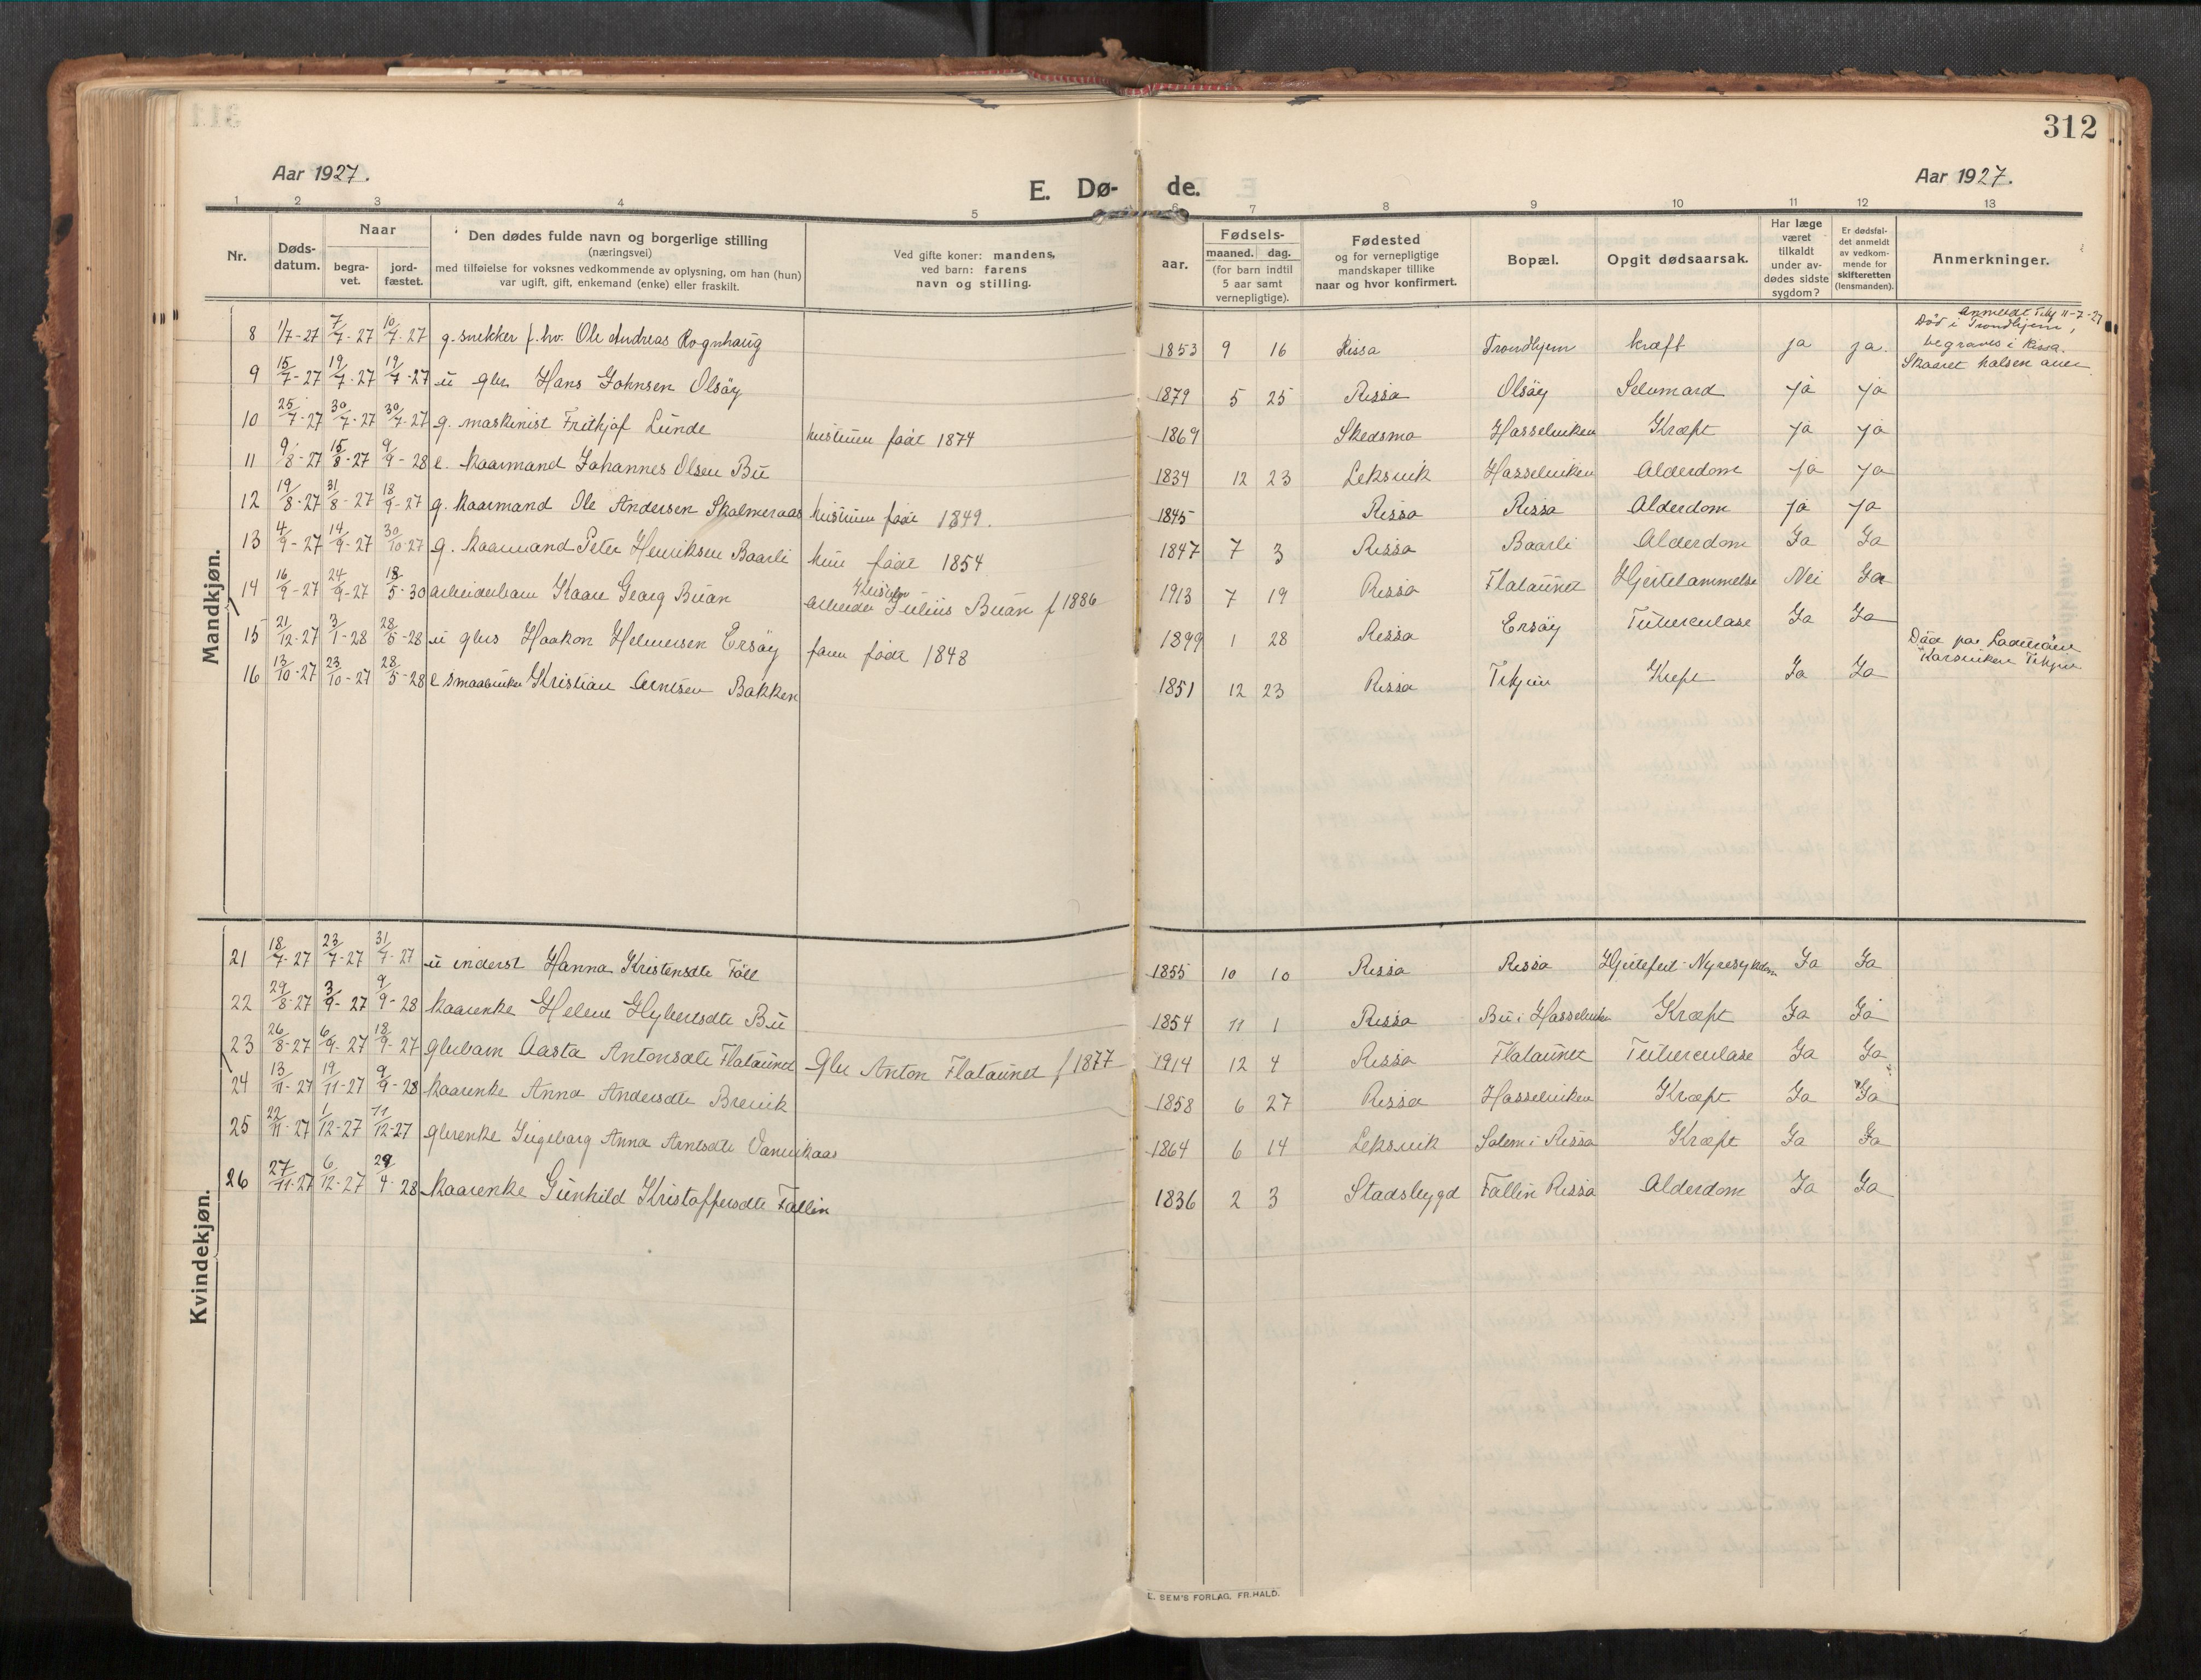 312
Aar 1927.
E. Dø- de.
Aar 1927.
1 2 3 4 5 6 7 8 9 10 11 12 13
Nr.
Døds-
datum.
Naar
begra-
vet.
jord-
fæstet.
Den dødes fulde navn og borgerlige stilling
(næringsvei)
med tilføielse for voksnes vedkommende av oplysning, om han (hun)
var ugift, gift, enkemand (enke) eller fraskilt.
Ved gifte koner: mandens,
ved barn: farens
navn og stilling.
Fødsels-
aar.
maaned. dag.
(for barn indtil
5 aar samt
vernepligtige).
Fødested
og for vernepligtige
mandskaper tillike
naar og hvor konfirmert.
Bopæl.
Opgit dødsaarsak.
Har læge
været
tilkaldt
under av-
dødes sidste
sygdom?
Er dødsfal-
det anmeldt
av vedkom-
mende for
skifteretten
(lensmanden).
Anmerkninger.
Mandkjøn.
8 1/7-27 7/7-27 10/7-27 g. snekker f. hv. Ole Andreas Rognhaug 1853 9 16 Rissa Trondhjem kræft ja ja. anmeldt Trhj 11-7-27
Död i Trondhjem,
begraves i Rissa.
9 15/7-27 19/7-27 19/7-27 u gbr Hans Johnsen Olsöy 1879 5 25 Rissa Olsöy Selvmord ja ja Skaaret halsen over
10 25/7-27 30/7-27 30/7-27 g. maskinist Fritkjof Lunde hustruen födt 1874 1869 Skedsmo Hasselviken Kræft ja ja
11 9/8-27 15/8-27 9/9-28 e. kaarmand Johannes Olsen Bu 1834 12 23 Leksvik Hasselviken Alderdom ja ja
12 19/8-27 31/8-27 18/9-27 g. kaarmand Ole Andersen Skalmeraas hustruen födt 1849. 1845 Rissa Rissa Alderdom ja ja
13 4/9-27 14/9-27 30/10-27 g. kaarmand Peter Henriksen Baarli hun födt 1854 1847 7 3 Rissa Baarli Alderdom Ja Ja
14 16/9-27 24/9-27 18/5-30 arbeiderbarn Kaare Georg Buan arbeider Julius Buan f 1886 1913 7 19 Rissa Flataunet Hjertelammelse Nei Ja
15 21/12-27 3/1-28 28/5-28 u gbrs Haakon Helmersen Ersöy faren födt 1848 1899 1 28 Rissa Ersöy Tuberculose Ja Ja
16 13/10-27 23/10-27 28/5-28 e smaabruker Kristian Arntsen Bakken 1851 12 23 Rissa Trhjem Kreft Ja Ja Död paa
Trhjem
Kvindekjøn.
21 18/7-27 23/7-27 31/7-27 u inderst Hanna Kristensdtr Föll 1855 10 10 Rissa Rissa Hjertefeil - Nyresykdom Ja Ja
22 29/8-27 3/9-27 9/9-28 kaarenke Helene Hybertsdtr Bu 1854 11 1 Rissa Bu i Hasselviken Kræft Ja Ja
23 26/8-27 6/9-27 18/9-27 gbrbarn Aasta Antonsdtr Flataunet Gbr Anton Flataunet f 1877 1914 12 4 Rissa Flataunet Tuberculose Ja Ja
24 13/11-27 19/11-27 9/9-28 kaarenke Anna Andersdtr Brevik 1858 6 27 Rissa Hasselviken Kræft Ja Ja
25 22/11-27 1/12-27 11/12-27 gbrenke Ingeborg Anna Arntsdtr Vanvikaas 1864 6 14 Leksvik Salem i Rissa Kræft Ja Ja
26 27/11-27 6/12-27 29/4-28 kaarenke Gunhild Kristoffersdtr Fallin 1836 2 3 Stadsbygd Fallin Rissa Alderdom Ja Ja
E. SEM'S FORLAG, FR.HALD.